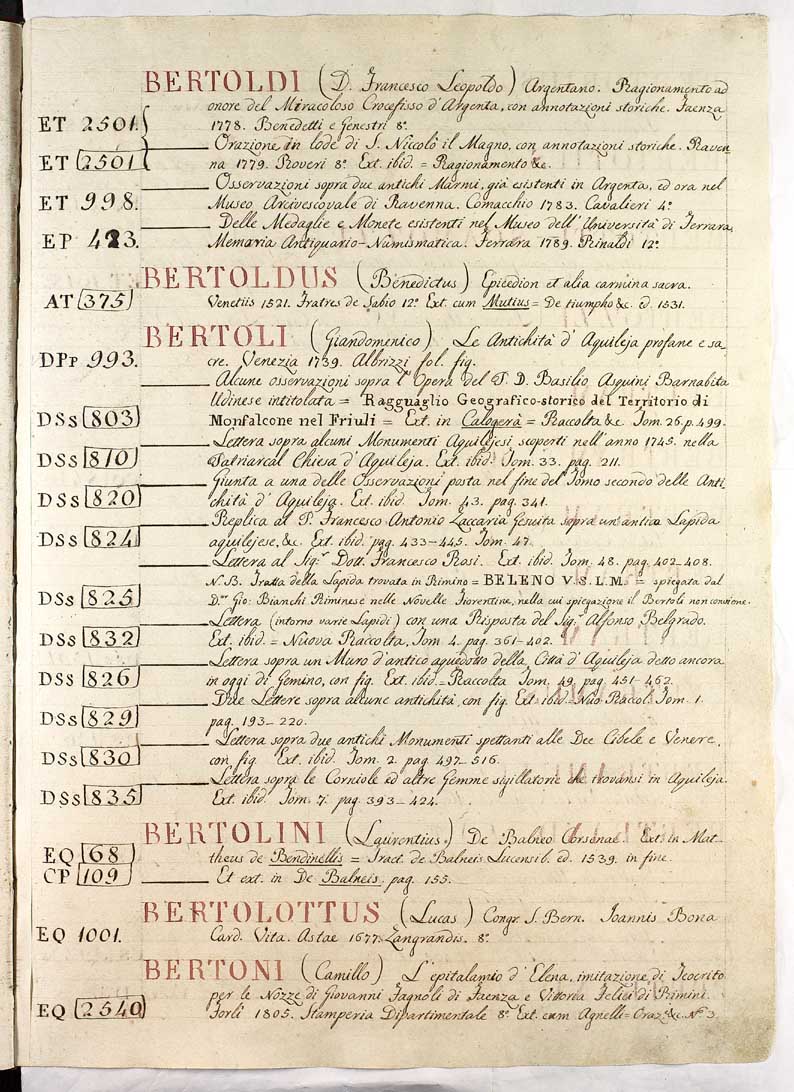 BERTOLDI (D. Francesco Leopoldo) Argentano. Ragionamento ad
onore del Miracoloso Crocefisso d'Argenta, con annotazioni storiche. Faenza
ET 2501. 1778. Benedetti e Genestri 8.º
Orazione in lode di S. Niccolò il Magno, con annotazioni storiche. Raven-
ET 2501 na 1779. Roveri 8.º Ext. ibid. = Ragionamento &c.
Osservazioni sopra due antichi Marmi, già esistenti in Argenta, ed ora nel
ET 998. Museo Arcivescovale di Ravenna. Comacchio 1783. Cavalieri 4.º
Delle Medaglie e Monete esistenti nel Museo dell'Università di Ferrara,
EP 423. Memoria Antiquario-Numismatica. Ferrara 1789. Rinaldi 12.º
BERTOLDUS (Benedictus) Epicedion et alia carmina sacra.
AT 375 Venetiis 1521. Fratres de Sabio 12.º Ext. cum Mutius = De tiumpho &c. ed. 1531.
BERTOLI (Giandomenico) Le Antichità d'Aquileja profane e sa-
DPp 993. cre. Venezia 1739. Albrizzi fol. fig.
Alcune osservazioni sopra l'Opera del P. D. Basilio Asquini Barnabita
Udinese intitolata = Ragguaglio Geografico-storico del Territorio di
DSs 803 Monfalcone nel Friuli = Ext. in Calogerà = Raccolta &c. Tom. 26. p. 499.
Lettera sopra alcuni Monumenti Aquilejesi scoperti nell'anno 1745. nella
DSs 810 Patriarcal Chiesa d'Aquileja. Ext. ibid. Tom. 33. pag. 211.
Giunta a una delle Osservazioni posta nel fine del Tomo secondo delle Anti-
DSs 820 chità d'Aquileja. Ext. ibid. Tom. 43. pag. 341.
Replica al P. Francesco Antonio Zaccaria Gesuita sopra un'antica Lapida
DSs 824 aquilejese, &c. Ext. ibid. pag. 433-445. Tom. 47.
Lettera al Sig.r Dott. Francesco Rosi. Ext. ibid. Tom. 48. pag. 402-408.
N.B. Tratta della Lapida trovata in Rimino = BELENO V. S. L. M. = spiegata dal
DSs 825 D.r Gio: Bianchi Riminese nelle Novelle Fiorentine, nella cui spiegazione il Bertoli non conviene.
Lettera (intorno varie Lapidi) con una Risposta del Sig.r Alfonso Belgrado.
DSs 832 Ext. ibid. = Nuova Raccolta, Tom 4. pag. 361-402.
Lettera sopra un Muro d'antico aquedotto della Città d'Aquileja detto ancora
DSs 826 in oggi di Gemino, con fig. Ext. ibid. = Raccolta Tom. 49. pag. 451-462.
Due Lettere sopra alcune antichità, con fig. Ext. ibid. Nuo. Raccol. Tom. 1.
DSs 829 pag. 193-220.
Lettera sopra due antichi Monumenti spettanti alle Dee Cibele e Venere,
DSs 830 con fig. Ext. ibid. Tom. 2. pag. 497-516.
Lettera sopra le Corniole ed altre Gemme sigillatorie che trovansi in Aquileja.
DSs 835 Ext. ibid. Tom. 7. pag. 393-424.
BERTOLINI (Laurentius.) De Balneo Corsenae. Ext. in Mat-
EQ 68 theus de Bendinellis = Tract. de Balneis Lucensib. ed. 1539. in fine.
CP 109 Et ext. in De Balneis. pag. 155.
BERTOLOTTUS (Lucas) Congr. S. Bern. Ioannis Bona
EQ 1001. Card. Vita. Astae 1677. Zangrandis. 8.º
BERTONI (Camillo) L'epitalamio d'Elena, imitazione di Teocrito
per le Nozze di Giovanni Fagnoli di Faenza e Vittoria Felici di Rimini.
EQ 2540 Forlì 1805. Stamperia Dipartimentale 8.º Ext. cum Agnelli = Oraz.e &c. N.º 3.